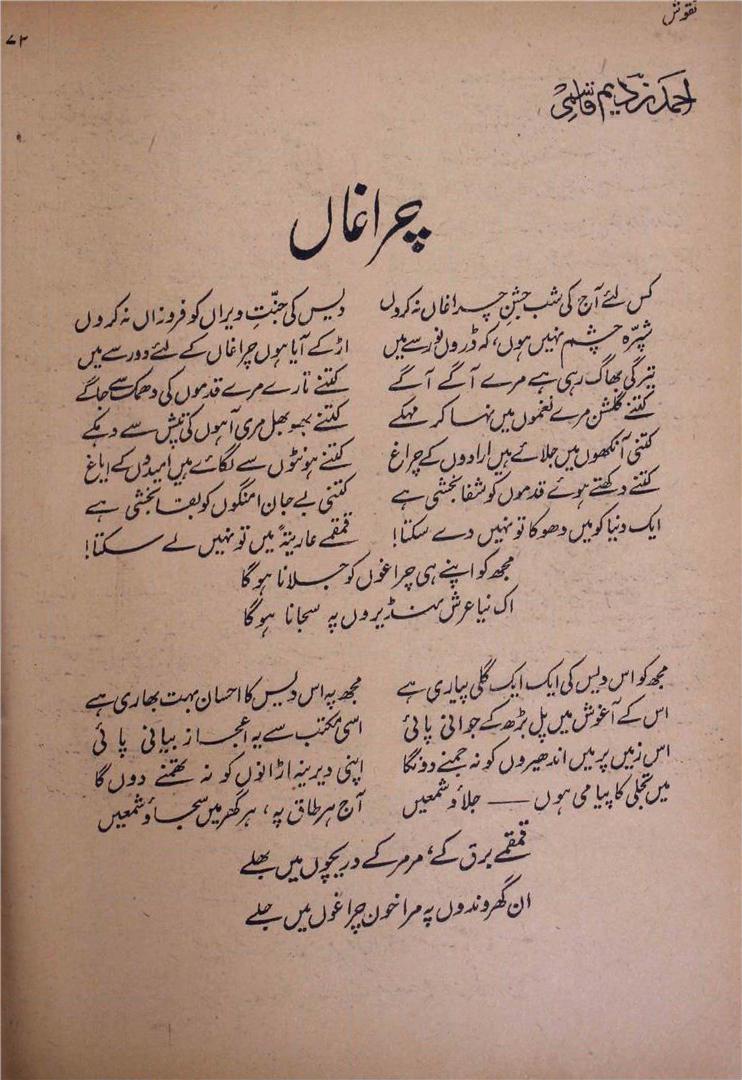 نقوش
۷۳
احمد ندیم قاسمی
چراغاں
کس لئے آج کی شب جشنِ چراغاں نہ کروں
دیس کی جنّتِ ویراں کو فروزاں نہ کروں
شپرّہ چشم نہیں ہوں، کہ ڈروں نور سے میں
اڑ کے آیا ہوں چراغاں کے لئے دور سے میں
تیرگی بھاگ رہی ہے مرے آگے آگے
کتنے تارے مرے قدموں کی دھمک سے جاگے
کتنے گلشن مرے نغموں میں نہا کر مہکے
کتنے بھوبھل مری آہوں کی تپش سے دہکے
کتنی آنکھوں میں جلائے ہیں ارادوں کے چراغ
کتنے ہونٹوں سے لگائے ہیں امیدوں کے ایاغ
کتنے دکھتے ہوئے قدموں کو شفا بخشی ہے
کتنی بے جان امنگوں کو بقا بخشی ہے
ایک دنیا کو میں دھوکا تو نہیں دے سکتا!
قمقمے عاریتہً میں تو نہیں لے سکتا!
مجھ کو اپنے ہی چراغوں کو جلانا ہو گا
اک نیا عرش منڈیروں پہ سجانا ہو گا
مجھ کو اس دیس کی ایک ایک گلی پیاری ہے
مجھ پہ اس دیس کا احسان بہت بھاری ہے
اس کے آغوش میں پل بڑھ کے جوانی پائی
اسی مکتب سے یہ اعجاز بیانی پائی
اس زمیں پر میں اندھیروں کو نہ جمنے دونگا
اپنی دیرینہ اڑانوں کو نہ تھمنے دوں گا
میں تجلی کا پیامی ہوں ــــ جلاؤ شمعیں
آج ہر طاق پہ، ہر گھر میں سجاؤ شمعیں
قمقمے برق کے، مرمر کے دریچوں میں بھلے
ان گھروندوں پہ مرا خون چراغوں میں جلے